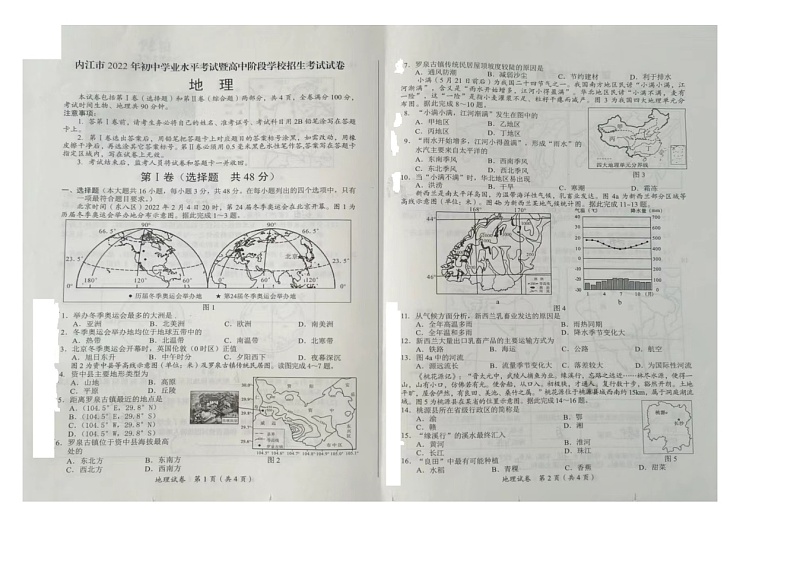 内江市 2022 年初中学业水平考试暨高中阶段学校招生考试试卷
地 理
本试卷包括第Ⅰ卷（选择题）和第Ⅱ卷（综合题）两部分，共 4 页，全卷满分 100 分，
考试时间生物、地理共 90 分钟。
注意事项：
1. 答第Ⅰ卷前，请考生务必将自己的姓名、准考证号、考试科目用 2B 铅笔涂写在答题
卡上。
2. 第Ⅰ卷选出答案后，用铅笔把答题卡上对应题目的答案标号涂黑，如需改动，用橡
皮擦干净后，再选涂其它答案标号。第Ⅱ卷必须用 0.5 毫米黑色水性笔作答，答案写在答题卡
指定区域内，写在试卷上无效。
3. 考试结束后，监考人员将试卷和答题卡一并收回。
第Ⅰ卷（选择题 共 48 分）
一、选择题（本大题共 16 小题，每小题 3 分，共 48 分。在每小题列出的四个选项中，只有
一项最符合题目要求。）
北京时间（东八区）2022 年 2 月 4 日 20 时，第 24 届冬季奥运会在北京开幕。图 1 为
历届冬季奥运会举办地分布示意图。据此完成 1～3 题。
66.5°
66.5°
23.5°
23.5°
北京
● 历届冬季奥运会举办地 ★ 第24届冬季奥运会举办地
图 1
1. 举办冬季奥运会最多的大洲是
A. 亚洲 B. 北美洲 C. 欧洲 D. 南美洲
2. 冬季奥运会举办地均位于地球五带中的
A. 热带 B. 北温带 C. 南温带 D. 北寒带
3. 北京冬季奥运会开幕时，英国伦敦（0 时区）正值
A. 旭日东升 B. 中午时分 C. 夕阳西下 D. 夜幕深沉
图 2 为资中县等高线示意图（单位：米）及罗泉古镇传统民居图。读图完成 4～7 题。
4. 资中县主要地形类型为
A. 山地 B. 高原
C. 平原 D. 丘陵
5. 距离罗泉古镇最近的地点是
A. (104.5° E, 29.8° N)
B. (104.5° E, 29.8° S)
C. (104.5° W, 29.8° N)
D. (104.5° W, 29.8° S)
6. 罗泉古镇位于资中县海拔最高
处的
A. 东北方 B. 东南方
C. 西北方 D. 西南方
图 2
地理试卷 第 1 页（共 4 页）
7. 罗泉古镇传统民居屋顶坡度较陡的原因是
A. 通风防潮 B. 减弱沙尘 C. 节约建材 D. 利于排水
小满（5 月 21 日前后）为我国二十四节气之一。我国南方地区民谚“小满小满，江
河渐满”，含义是“雨水开始增多，江河小得盈满”。华北地区民谚“小满不满，麦有
一险”，这“一险”是指小麦灌浆不足、粒籽干瘪而减产。图 3 为我国四大地理单元分
布图。据此完成 8～10 题。
8. “小满小满，江河渐满”发生在图中的
A. 甲地区 B. 乙地区
C. 丙地区 D. 丁地区
9. “雨水开始增多，江河小得盈满”，形成“雨水”的
水汽主要来自太平洋的
A. 东南季风 B. 西南季风
C. 东北季风 D. 西北季风
四大地理单元分界线
图 3
10. 当“小满不满”时，华北地区易出现
A. 洪涝 B. 干旱 C. 寒潮 D. 霜冻
新西兰是南太平洋岛国，为温带海洋性气候，乳畜业发达。图 4a 为新西兰部分区域等
高线示意图（单位：米），图 4b 为新西兰某地气候统计图。据此完成 11～13 题。
气温（℃）
降水量（mm）
44°
46°
1 4 7 10（月）
a
b
图 4
11. 从气候方面分析，新西兰乳畜业发达的原因是
A. 全年高温多雨 B. 雨热同期
C. 全年温和多雨 D. 降水季节变化大
12. 新西兰大量出口乳畜产品的主要运输方式为
A. 铁路 B. 海运 C. 公路 D. 航空
13. 图 4a 中的河流
A. 源远流长 B. 流量季节变化大 C. 落差较大 D. 为国际性河流
《桃花源记》：“晋太元中，武陵人捕鱼为业。缘溪行，忘路之远近……林尽水源，便得一
山，山有小口，仿佛若有光。便舍船，从口入。初极狭，才通人。复行数十步，豁然开朗。土地
平旷，屋舍俨然，有良田、美池、桑竹之属。”桃花源位于桃源县城西南约 15km，属于洞庭湖流
域。图 5 为桃源县在某省的位置示意图。据此完成 14～16 题。
14. 桃源县所在省级行政区的简称是
A. 渝 B. 鄂
C. 赣 D. 湘
15. “缘溪行”的溪水最终汇入
A. 黄河 B. 淮河
C. 长江 D. 珠江
桃源
长沙
图 5
16. “良田”中最有可能种植
A. 水稻 B. 青稞 C. 香蕉 D. 甜菜
地理试卷 第 2 页（共 4 页）